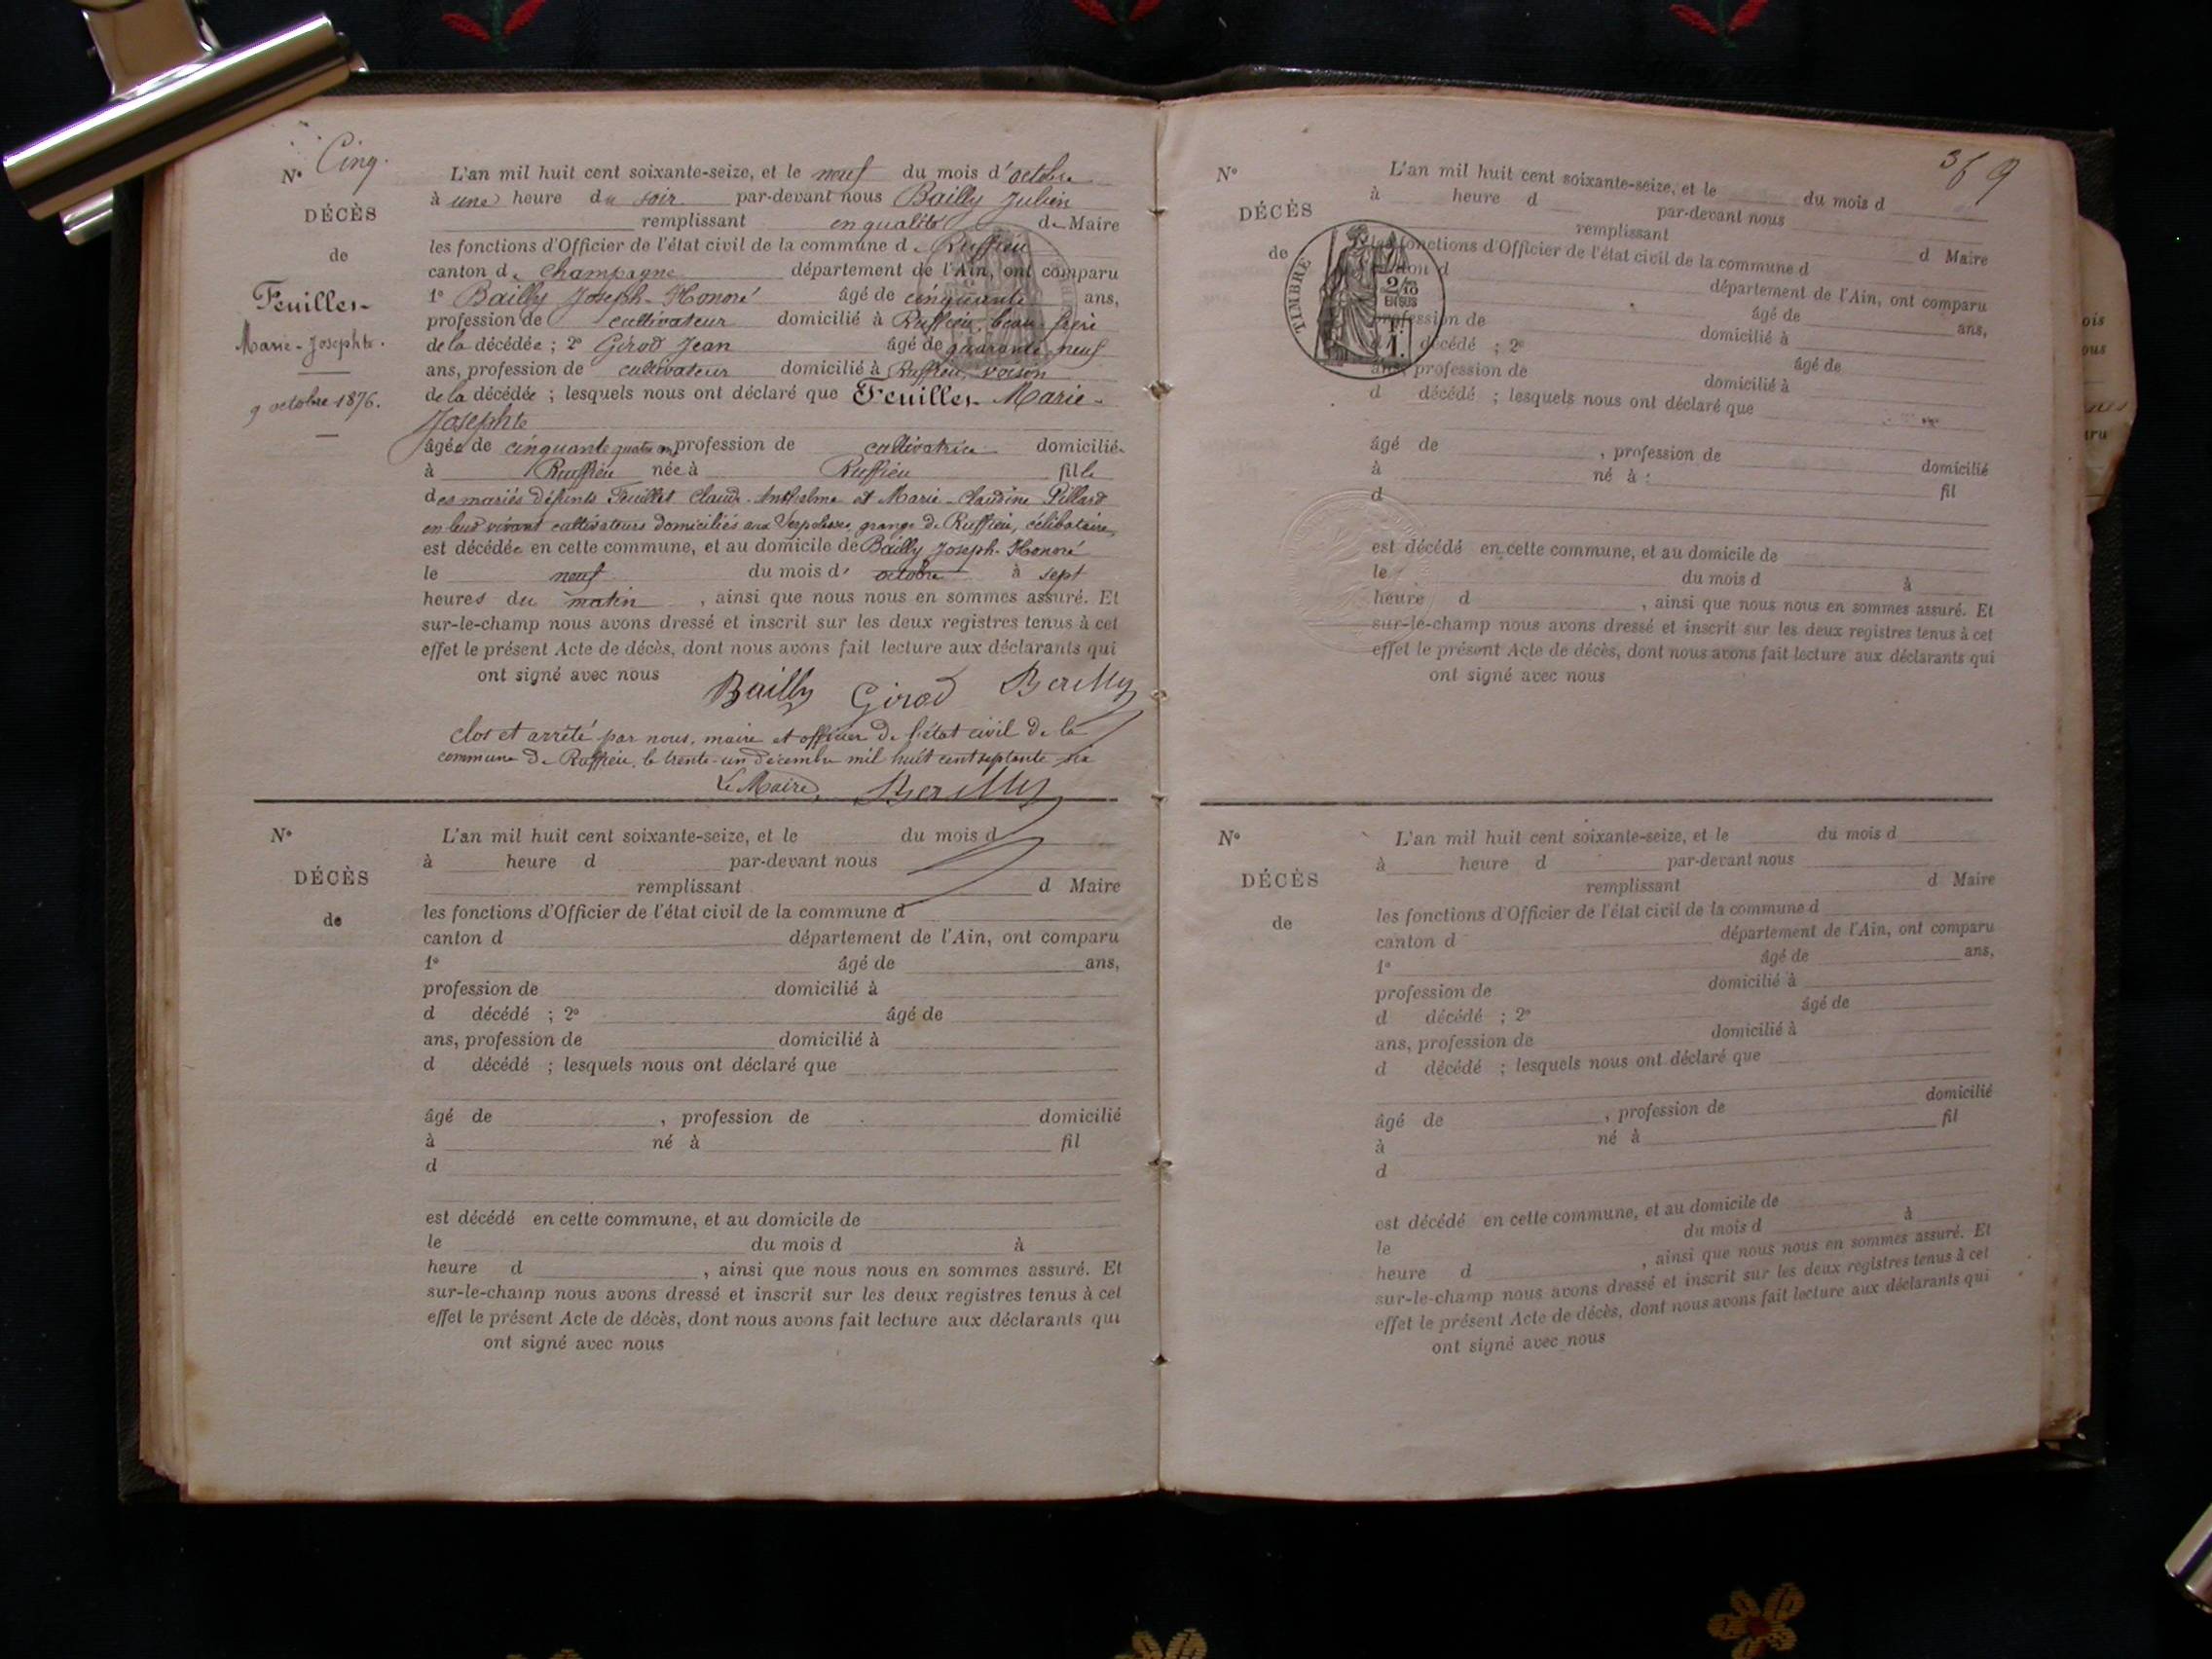 N° Cinq.
DÉCÈS
de
Feuillet
Marie-Josephte.
9 octobre 1876.
L'an mil huit cent soixante-seize, et le neuf du mois d'octobre
à une heure du soir par-devant nous Bailly Julien
remplissant en qualité de Maire
les fonctions d'Officier de l'état civil de la commune de Ruffieu
canton de Champagne département de l'Ain, ont comparu
1° Bailly Joseph-Honoré âgé de cinquante ans,
profession de cultivateur domicilié à Ruffieu, beau-frère
de la décédée ; 2° Girod Jean âgé de quarante neuf
ans, profession de cultivateur domicilié à Ruffieu, voisin
de la décédée ; lesquels nous ont déclaré que Feuillet Marie-
Josephte
âgée de cinquante quatre ans profession de cultivatrice domiciliée
à Ruffieu née à Ruffieu fille
des mariés défunts Feuillet Claude-Anthelme et Marie-Claudine Pillard
en leur vivant cultivateurs domiciliés aux grange de Ruffieu, célibataire,
est décédée en cette commune, et au domicile de Bailly Joseph-Honoré
le neuf du mois d'octobre à sept
heures du matin, ainsi que nous nous en sommes assuré. Et
sur-le-champ nous avons dressé et inscrit sur les deux registres tenus à cet
effet le présent Acte de décès, dont nous avons fait lecture aux déclarants qui
ont signé avec nous
Bailly Girod Bailly
Clos et arrêté par nous, maire et officier de l'état civil de la
commune de Ruffieu, le trente-un décembre mil huit cent septante six
Le Maire, Bailly
N°
DÉCÈS
de
L'an mil huit cent soixante-seize, et le du mois d
à heure d par-devant nous
remplissant d Maire
les fonctions d'Officier de l'état civil de la commune d
canton d département de l'Ain, ont comparu
1° âgé de ans,
profession de domicilié à
d décédé ; 2° âgé de
ans, profession de domicilié à
d décédé ; lesquels nous ont déclaré que
âgé de , profession de domicilié
à né à fil
d
est décédé en cette commune, et au domicile de
le du mois d à
heure d , ainsi que nous nous en sommes assuré. Et
sur-le-champ nous avons dressé et inscrit sur les deux registres tenus à cet
effet le présent Acte de décès, dont nous avons fait lecture aux déclarants qui
ont signé avec nous
369
N°
DÉCÈS
de
TIMBRE
2/10
EN SUS
L'an mil huit cent soixante-seize, et le du mois d
à heure d par-devant nous
remplissant d Maire
les fonctions d'Officier de l'état civil de la commune d
canton d département de l'Ain, ont comparu
âgé de ans,
profession de domicilié à
décédé ; 2° âgé de
ans, profession de domicilié à
d décédé ; lesquels nous ont déclaré que
âgé de , profession de domicilié
à né à fil
d
est décédé en cette commune, et au domicile de
le du mois d à
heure d , ainsi que nous nous en sommes assuré. Et
sur-le-champ nous avons dressé et inscrit sur les deux registres tenus à cet
effet le présent Acte de décès, dont nous avons fait lecture aux déclarants qui
ont signé avec nous
N°
DÉCÈS
de
L'an mil huit cent soixante-seize, et le du mois d
à heure d par-devant nous
remplissant d Maire
les fonctions d'Officier de l'état civil de la commune d
canton d département de l'Ain, ont comparu
1° âgé de ans,
profession de domicilié à
d décédé ; 2° âgé de
ans, profession de domicilié à
d décédé ; lesquels nous ont déclaré que
âgé de , profession de domicilié
à né à fil
d
est décédé en cette commune, et au domicile de
le du mois d à
heure d , ainsi que nous nous en sommes assuré. Et
sur-le-champ nous avons dressé et inscrit sur les deux registres tenus à cet
effet le présent Acte de décès, dont nous avons fait lecture aux déclarants qui
ont signé avec nous